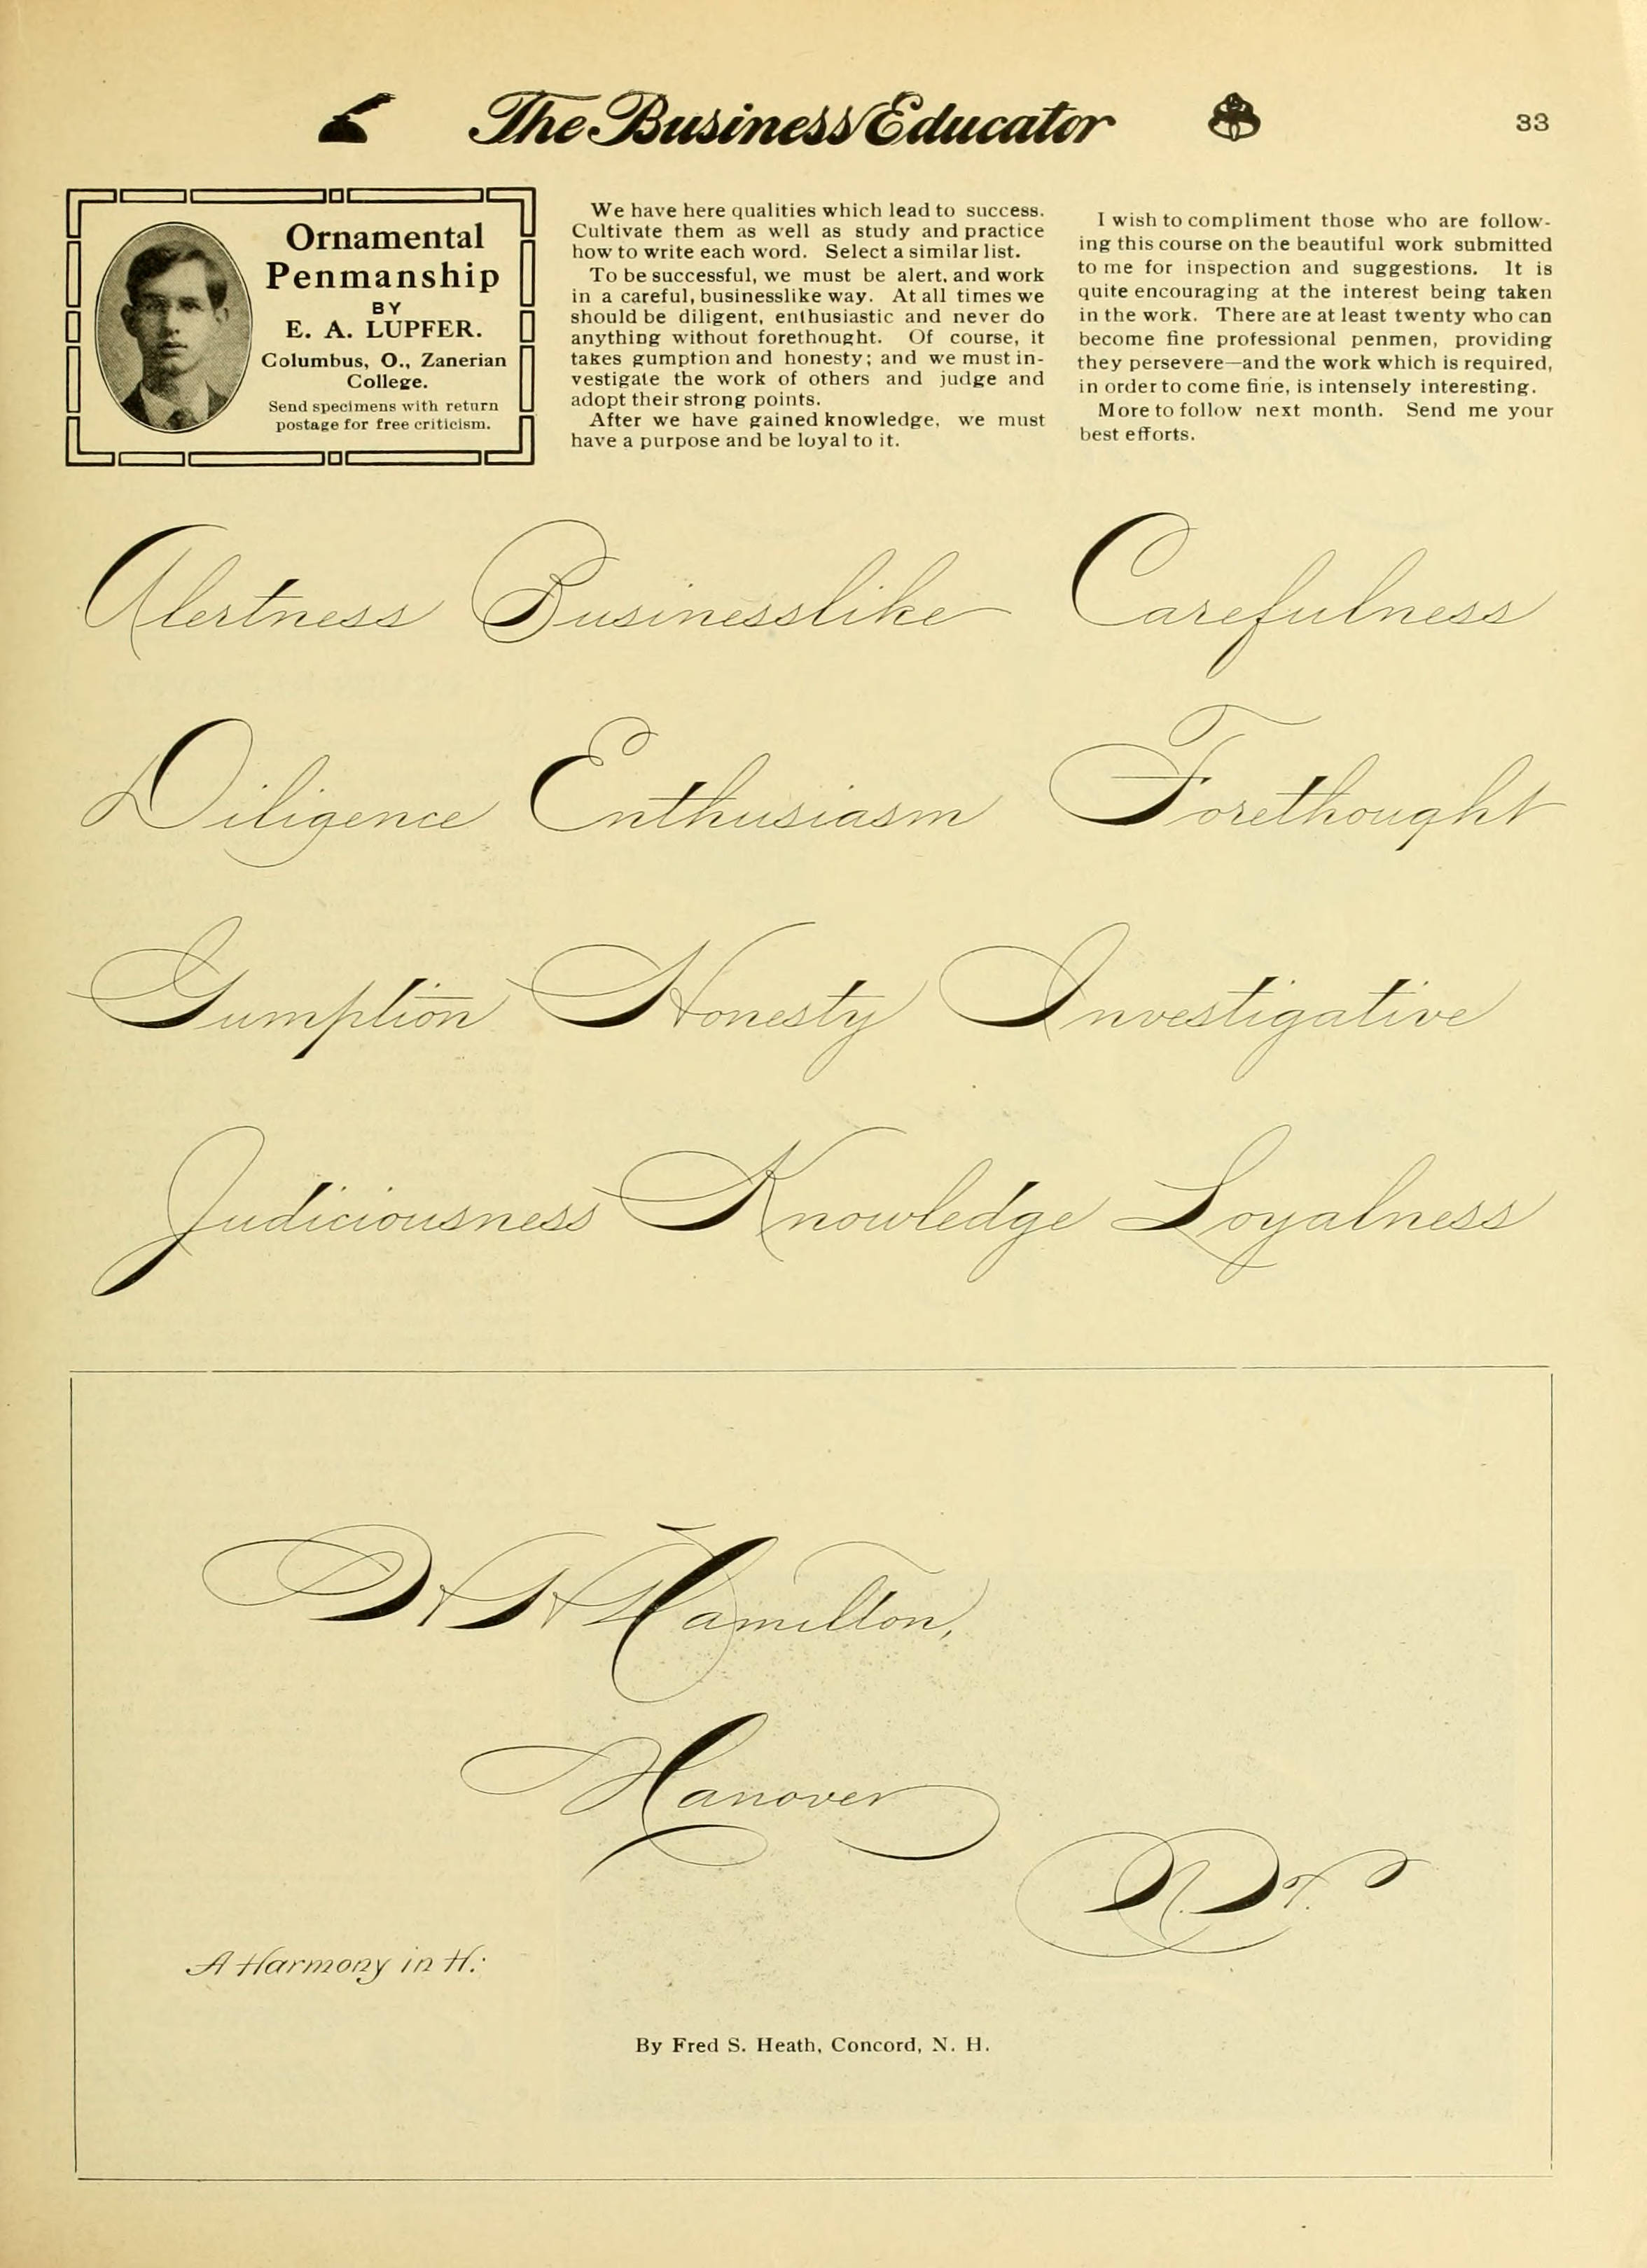 The Business Educator
33
Ornamental
Penmanship
BY
E. A. LUPFER.
Columbus, O., Zanerian
College.
Send specimens with return
postage for free criticism.
We have here qualities which lead to success.
Cultivate them as well as study and practice
how to write each word. Select a similar list.
To be successful, we must be alert, and work
in a careful, businesslike way. At all times we
should be diligent, enthusiastic and never do
anything without forethought. Of course, it
takes gumption and honesty; and we must in-
vestigate the work of others and judge and
adopt their strong points.
After we have gained knowledge, we must
have a purpose and be loyal to it.
I wish to compliment those who are follow-
ing this course on the beautiful work submitted
to me for inspection and suggestions. It is
quite encouraging at the interest being taken
in the work. There are at least twenty who can
become fine professional penmen, providing
they persevere—and the work which is required,
in order to come fine, is intensely interesting.
More to follow next month. Send me your
best efforts.
Alertness Businesslike Carefulness
Diligence Enthusiasm Forethought
Gumption Honesty Investigative
Judiciousness Knowledge Loyalness
H H Hamilton,
Hanover
N. H.
A Harmony in H.
By Fred S. Heath, Concord, N. H.